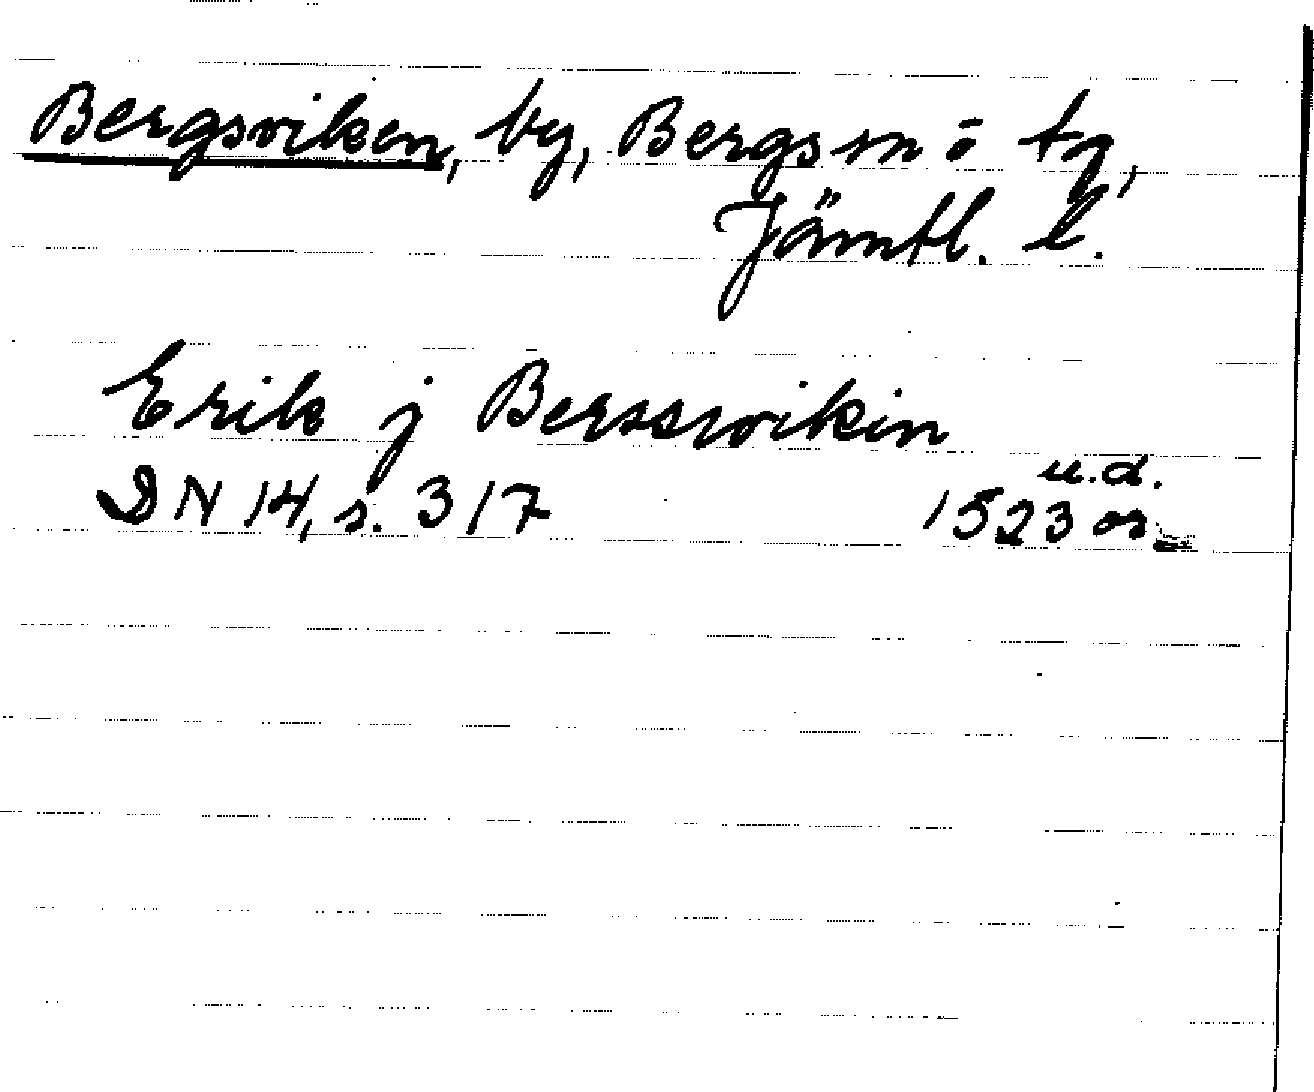 Bergsviken, by, Bergs sn o tg,
Jämtl. l.
Erik j Berssvikin
u.d.
DN 14, s. 317 1523 or.